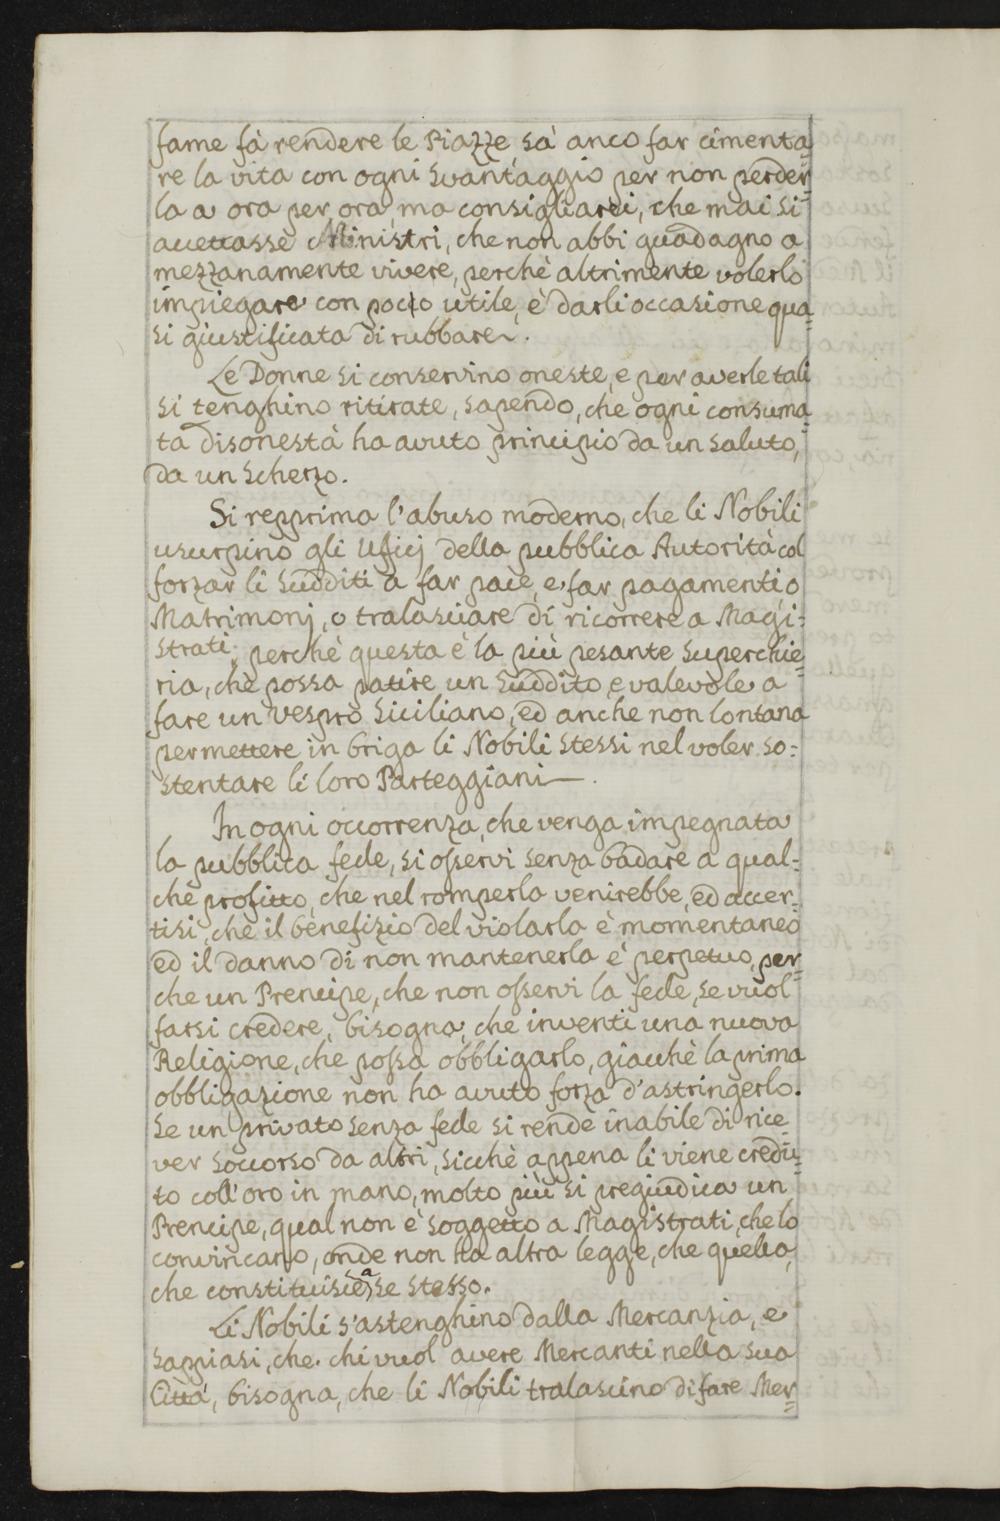 fame fà rendere le Piazze, sà anco far cimenta=
re la vita con ogni svantaggio per non perder=
la a ora per ora, ma consigliarei, che mai si
accettasse Ministri, che non abbi guadagno a
mezzanamente vivere, perchè altrimente volerlo
impiegare con poco utile, è darli occasione qua=
si giustificata di rubbare.
Le Donne si conservino oneste, e per averle tali
si tenghino ritirate, sapendo, che ogni consuma=
ta disonestà ha avuto principio da un saluto,
da un scherzo.
Si reprima l'abuso moderno, che li Nobili
usurpino gli Uficj della pubblica Autorità col
forzar li sudditi a far pace, e far pagamenti, o
Matrimonj, o tralasciare di ricorrere a Magi=
strati; perchè questa è la più pesante superchie=
ria, che possa patire un suddito, e valevole a
fare un vespro siciliano, ed anche non lontana
permettere in briga li Nobili stessi nel voler so=
stentare li loro Parteggiani.
In ogni occorrenza, che venga impegnata
la pubblica fede, si osservi senza badare a qual=
che profitto, che nel romperla venirebbe, ed accer=
tisi, che il benefizio del violarla è momentaneo
ed il danno di non mantenerla è perpetuo, per=
che un Prencipe, che non osservi la fede, se vuol
farsi credere, bisogna, che inventi una nuova
Religione, che possa obbligarlo, giacchè la prima
obbligazione non ha avuto forza d'astringerlo.
Se un privato senza fede si rende inabile di rice=
ver soccorso da altri, sicchè appena li viene credu=
to coll'oro in mano, molto più si pregiudica un
Prencipe, qual non è soggetto a Magistrati, che lo
convincano, onde non ha altra legge, che quella,
che constituisce a se stesso.
Li Nobili s'astenghino dalla Mercanzia, e
sappiasi, che chi vuol avere Mercanti nella sua
Città, bisogna, che li Nobili tralascino di fare Mer=